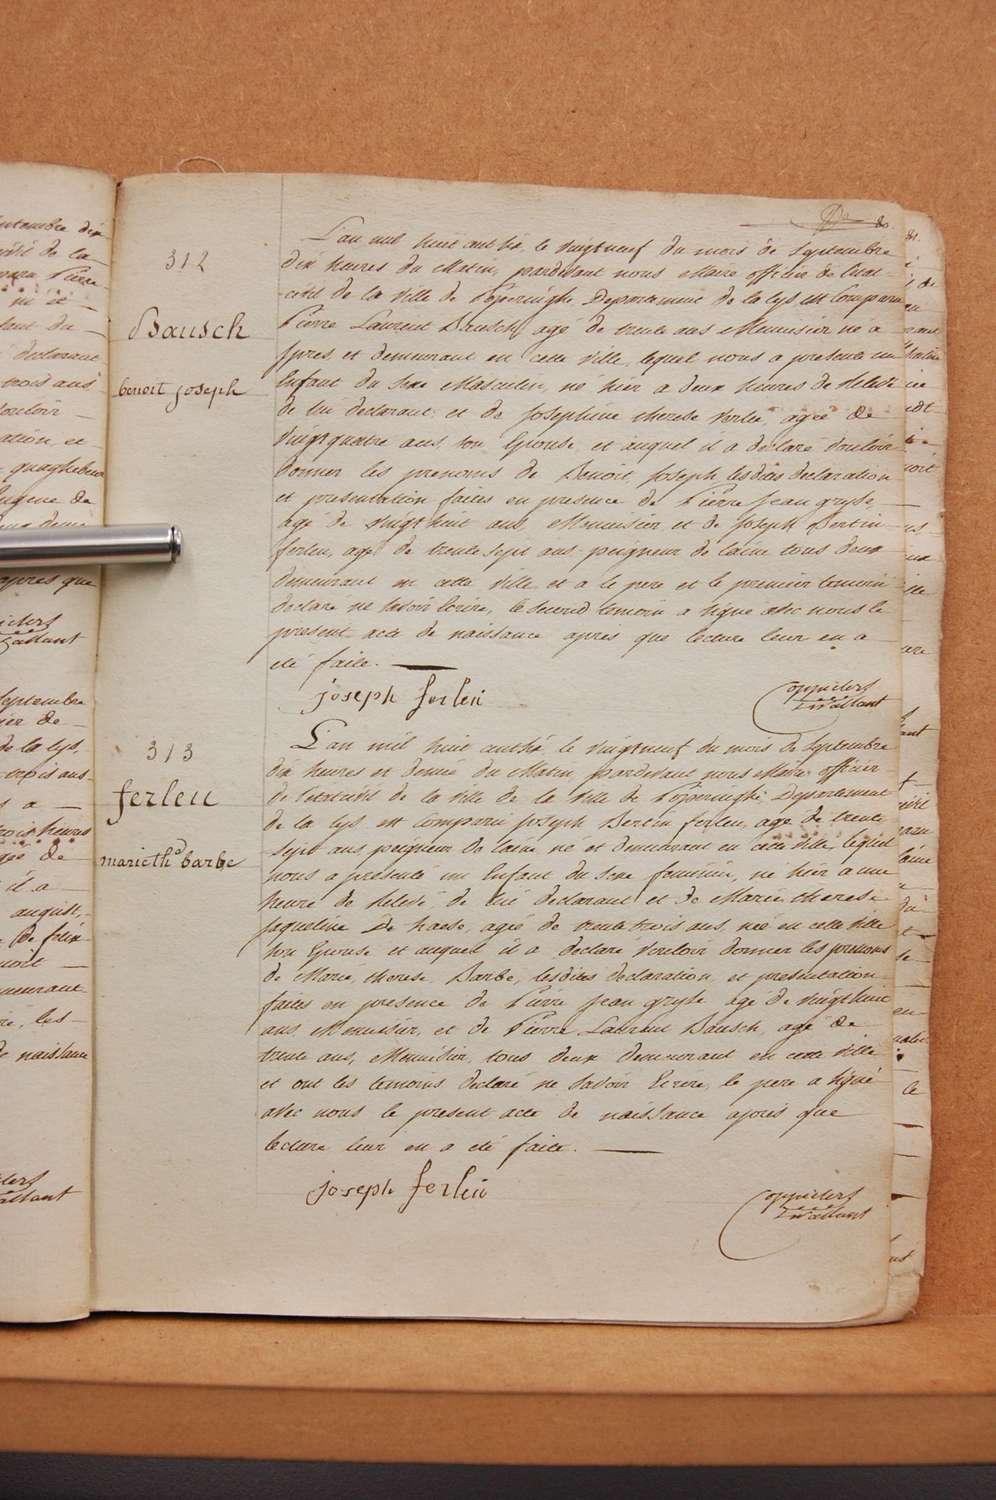 80.
312
Bausch
benoit joseph
L'an mil huit cent , le vingt neuf du mois de Septembre
dix heures du Matin, pardevant nous Maire officier de l'etat
civil de la ville de Poperinghe Departement de la lys est Comparu
Pierre Laurent Bausch, agé de trente ans Menuisier né a
Ipres et demeurant en cette ville, lequel nous a presenté un
Enfant du sexe Masculin, né hier a deux heures de relevé
de lui declarant et de Josephine therese , agée de
vingt quatre ans son Epouse, et auquel il a declaré vouloir
donner les prenoms de Benoit, Joseph lesdites declaration
et presentation faites en presence de Pierre Jean gryse
agé de vingt huit ans, Menuisier et de Joseph Bertin
ferleu, agé de trente sept ans peigneur de laine tous deux
demeurant en cette ville et a le pere et le premier temoin
declaré ne savoir Ecrire, le second temoin a signé avec nous le
present acte de naissance apres que lecture leur en a
eté faite.
joseph ferleu
313
ferleu
marie thse barbe
L'an mil huit cent , le vingt neuf du mois de Septembre
dix heures et demie du Matin, pardevant nous Maire officier
de l'etat civil de la ville de la ville de Poperinghe Departement
de la lys est Comparu Joseph Bertin ferleu, agé de trente
sept ans peigneur de laine né et demeurant en cette ville, lequel
nous a presenté un Enfant du sexe feminin, né hier a une
heure de relevé, de lui declarant et de Marie therese
Jaqueline De haese, agée de trente trois ans, née en cette ville
son Epouse et auquel il a declaré vouloir donner les prenoms
de Marie, therese Barbe, lesdites declaration et presentation
faites en presence de Pierre Jean gryse agé de vingt huit
ans Menuisier, et de Pierre Laurent Bausch, agé de
trente ans, Menuisier, tous deux demeurant en cette ville
et ont les temoins declaré ne savoir Ecrire, le pere a signé
avec nous le present acte de naissance apres que
lecture leur en a eté faite.
joseph ferleu